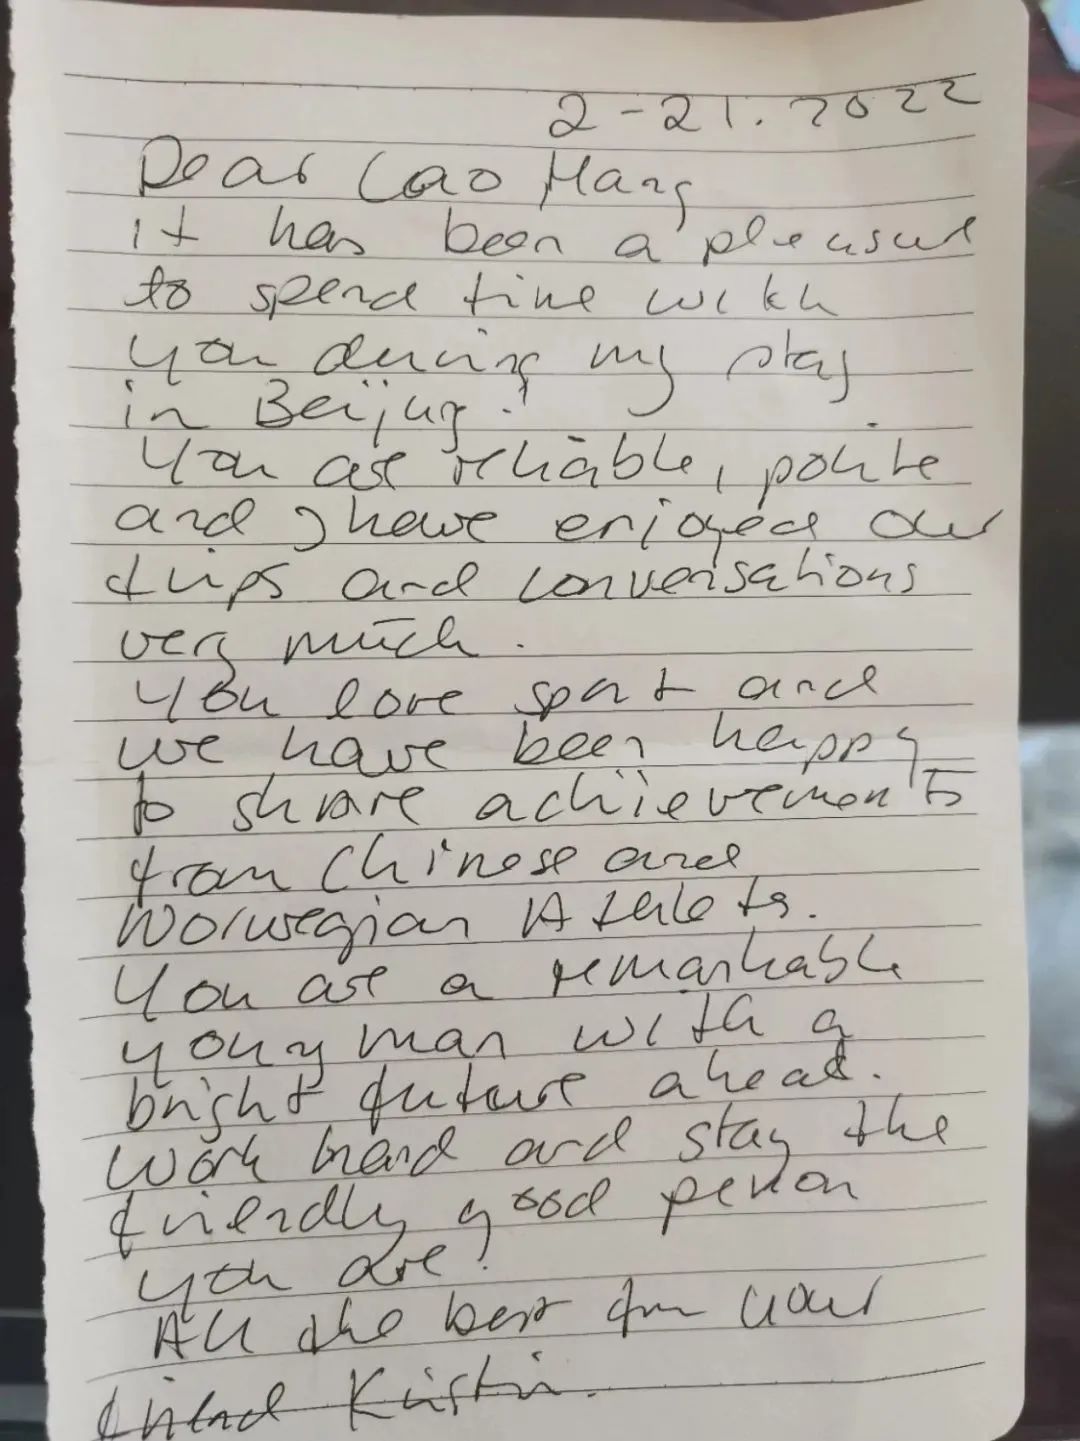 2-21.2022
Dear Cao Hang
it has been a pleasure
to spend time with
you during my stay
in Beijing!
You are reliable, polite
and I have enjoyed our
trips and conversations
very much.
You love sport and
we have been happy
to share achievements
from Chinese and
Norwegian Athlets.
You are a remarkable
young man with a
bright future ahead.
Work hard and stay the
friendly good person
you are!
All the best from your
friend Kirstin.